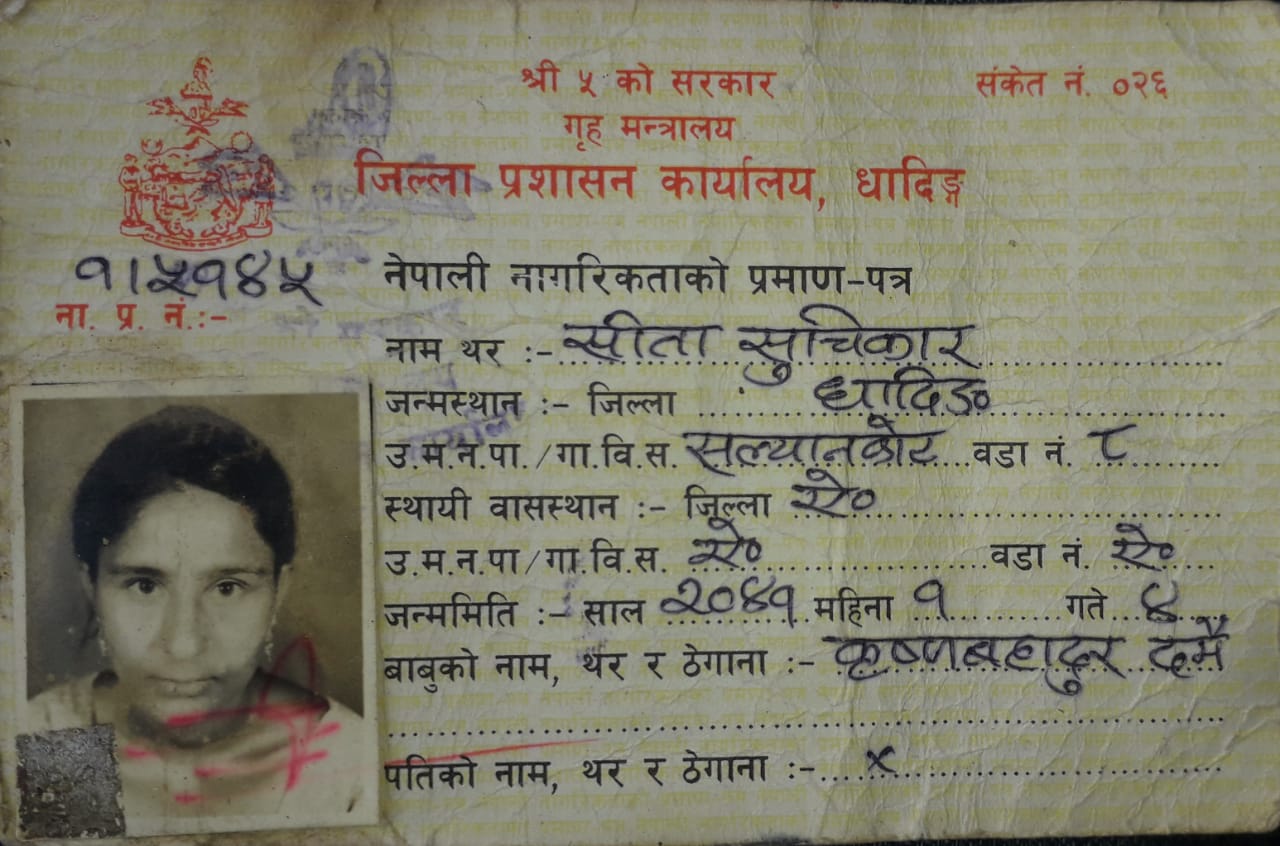 श्री ५ को सरकार
संकेत नं. ०२६
गृह मन्त्रालय
जिल्ला प्रशासन कार्यालय, धादिङ्ग
१।५१४५
नेपाली नागरिकताको प्रमाण-पत्र
ना. प्र. नं.:-
नाम थर :- सीता सुचिकार
जन्मस्थान :- जिल्ला धादिङ०
उ.म.न.पा./गा.वि.स. सल्यानकोट वडा नं. ८
स्थायी वासस्थान :- जिल्ला ऐ०
उ.म.न.पा/गा.वि.स. ऐ० वडा नं. ऐ०
जन्ममिति :- साल २०४१ महिना १ गते ४
बाबुको नाम, थर र ठेगाना :- कृष्णबहादुर दमै
पतिको नाम, थर र ठेगाना :- x